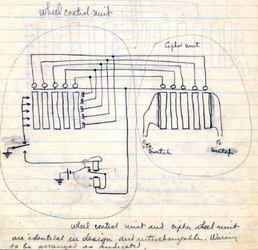 wheel control unit
Cipher unit
To
To
wheel control unit and cipher wheel unit
are identical in design and interchangeable. Wiring
to be arranged as indicated.